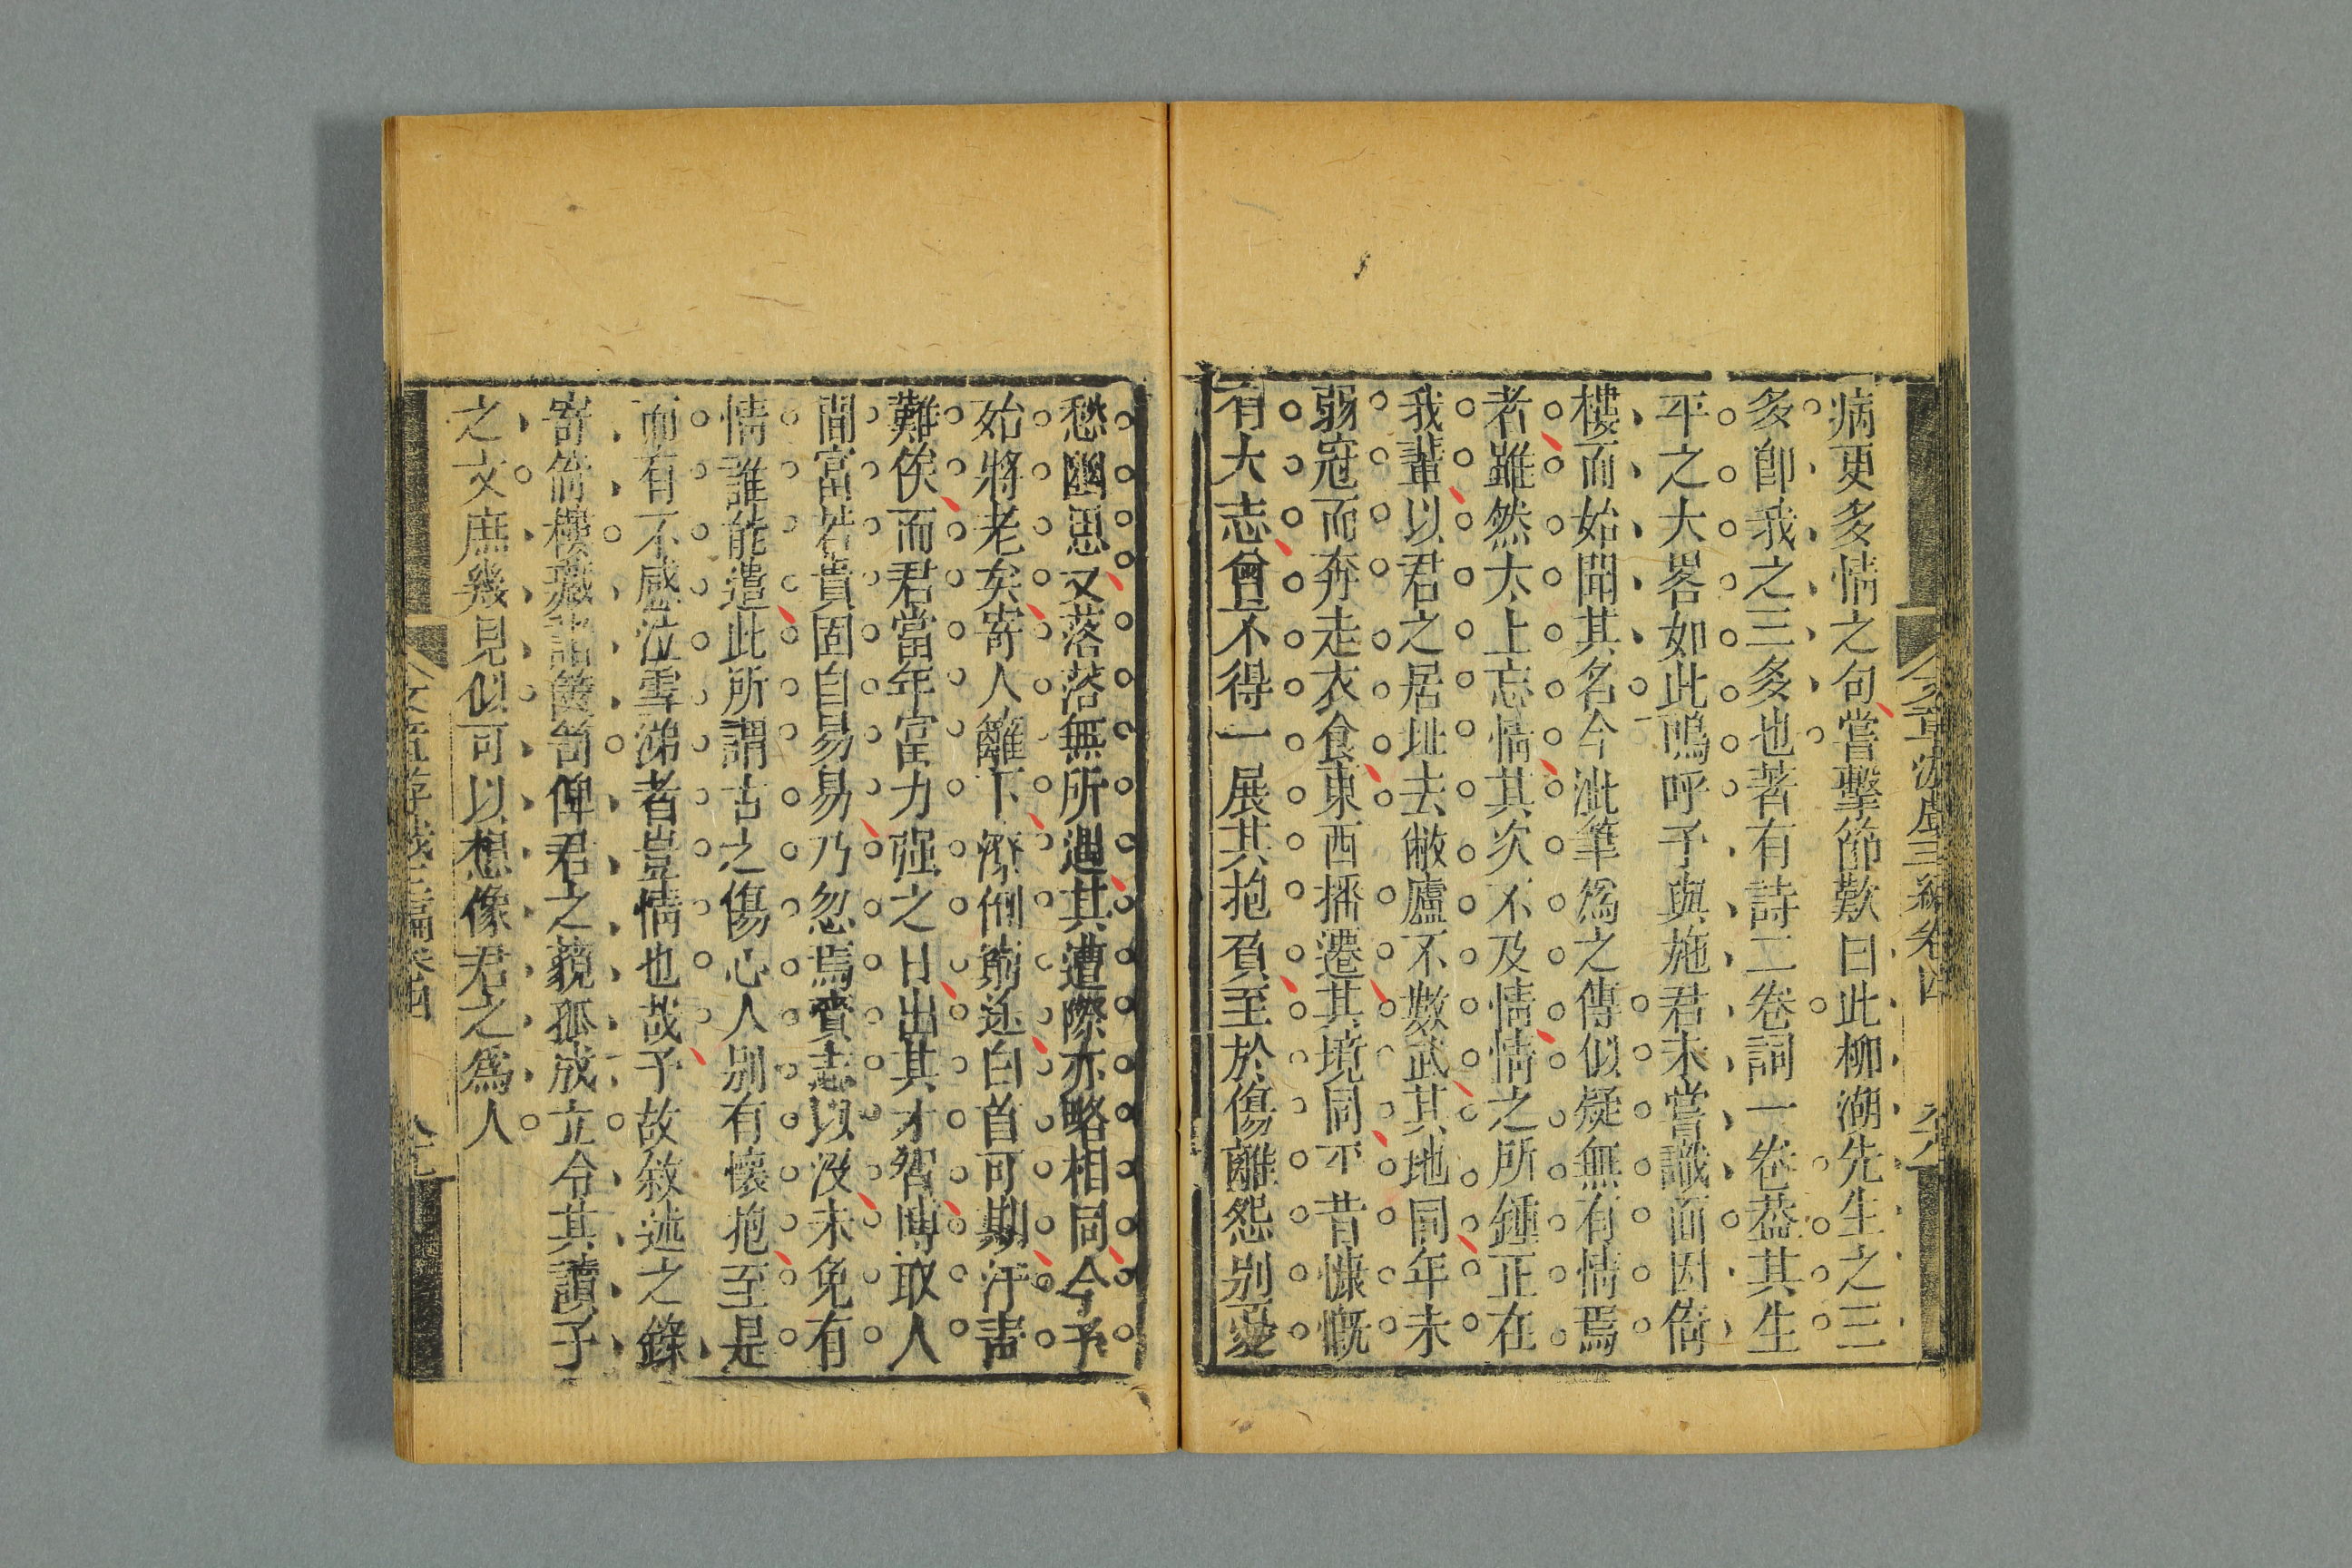 病更多情之句嘗擊節歎曰此柳湖先生之三
多卽我之三多也著有詩二卷詞一卷葢其生
平之大畧如此嗚呼予與施君未嘗識面因倚
樓而始聞其名今泚筆為之傳似疑無有情焉
者雖然太上忘情其次不及情情之所鍾正在
我輩以君之居址去敝廬不數武其地同年未
弱冠而奔走衣食東西播遷其境同平昔慷慨
有大志曾不得一展其抱負至於傷離怨别憂
愁幽思又落落無所遇其遭際亦略相同今予
始將老矣寄人籬下潦倒窮途白首可期汗青
難俟而君當年富力强之日出其才智博取人
間富若貴固自易易乃忽焉賫志以沒未免有
情誰能遣此所謂古之傷心人别有懷抱至是
而有不感泣雪涕者豈情也哉予故敘述之錄
寄倚樓藏諸篋笥俾君之藐孤成立令其讀予
之文庶幾見似可以想像君之為人
文章游戲三編卷四
文章游戲三編卷四